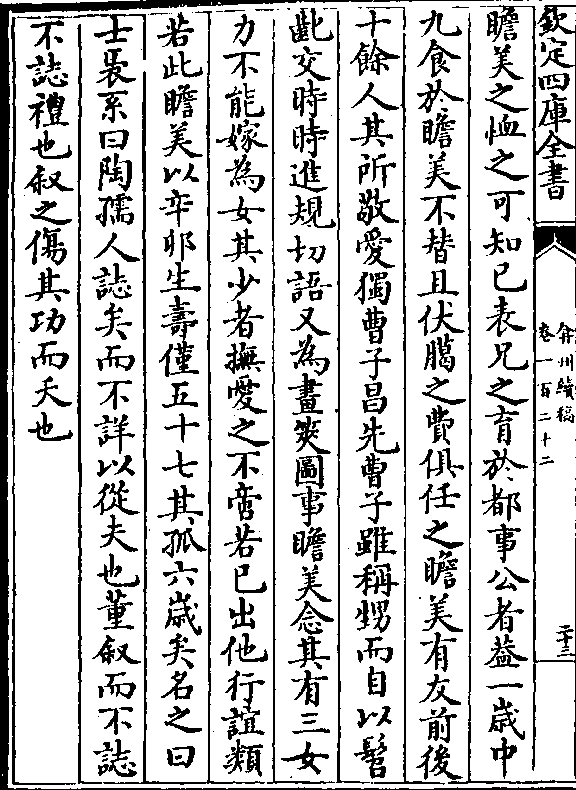 欽定四庫全書
弇州續稿
卷一百二十二
二十三
瞻美之恤之可知已表兄之育於都事公者葢一歲中
九食於瞻美不替且伏臈之費俱任之瞻美有友前後
十餘人其所敬愛獨曹子昌先曹子雖稱甥而自以髫
齔交時時進規切語又為畫筴圖事瞻美念其有三女
力不能嫁為女其少者撫愛之不啻若已出他行誼類
若此瞻美以辛邜生壽僅五十七其孤六歲矣名之曰
士裘系曰陶孺人誌矣而不詳以從夫也董叙而不誌
不誌禮也叙之傷其功而夭也